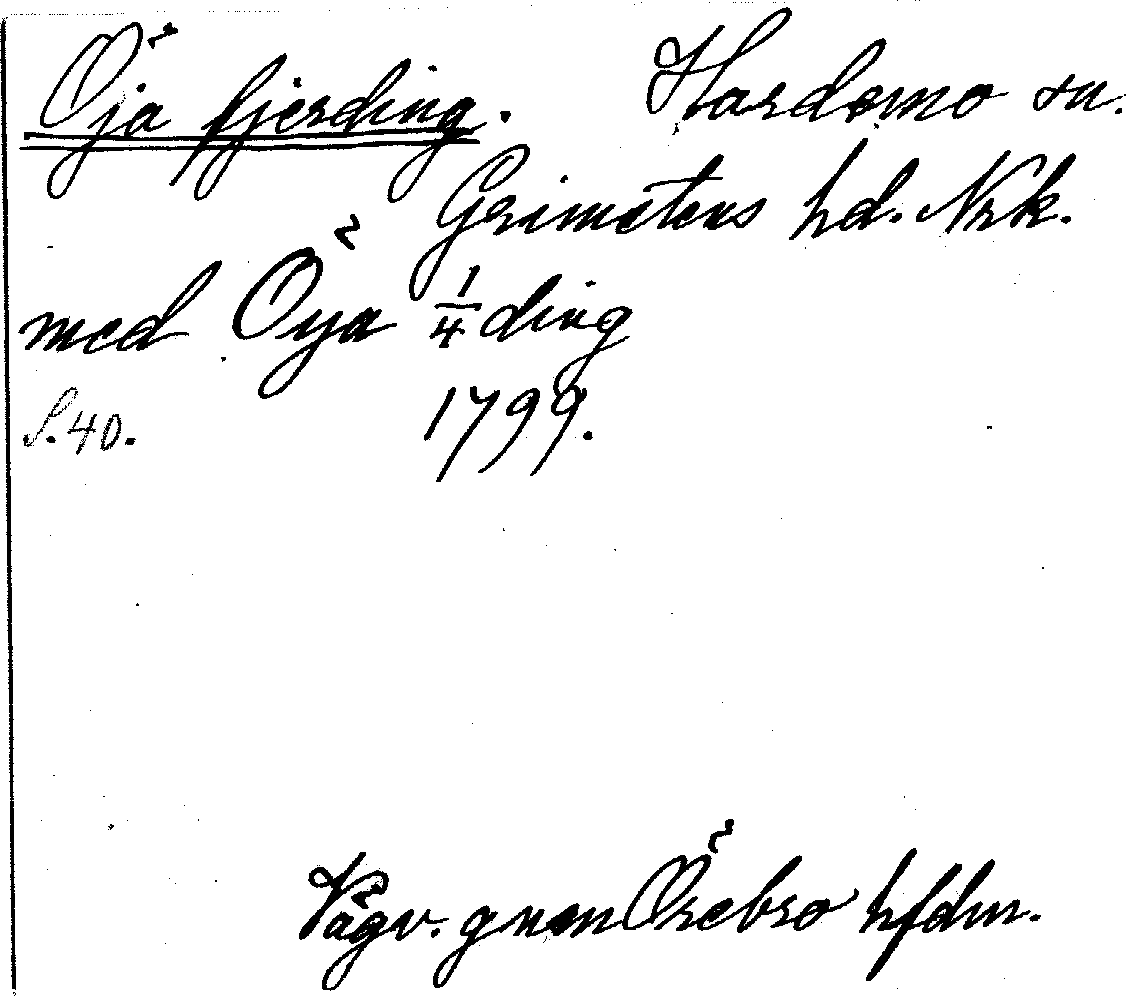 Öja fjerding. Hardemo sn.
Grimstens hd. Nrk.
med Öya 1/4 ding
S. 40. 1799.
Vägv. gnm Örebro hfdm.